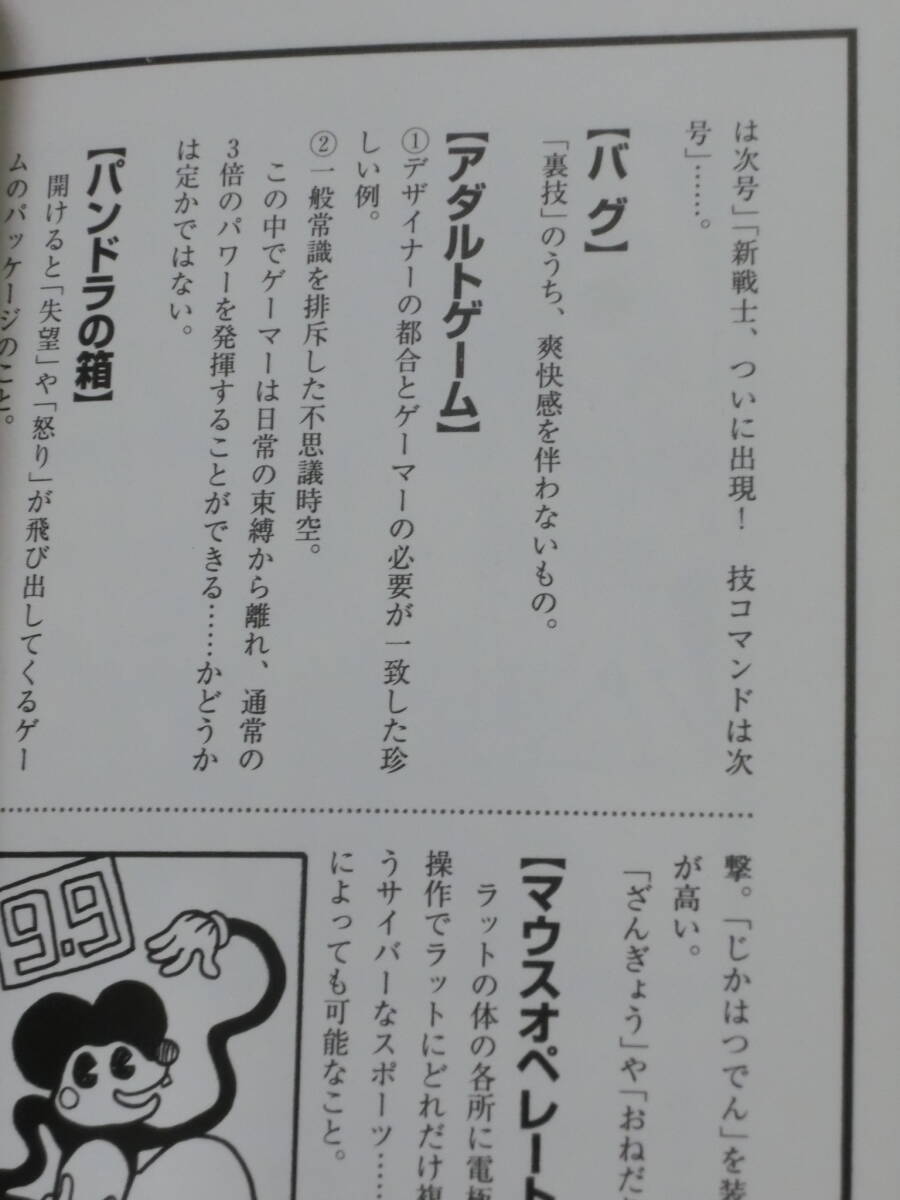 は次号」「新戦士、ついに出現！　技コマンドは次
号」……。
【バグ】
「裏技」のうち、爽快感を伴わないもの。
【アダルトゲーム】
①デザイナーの都合とゲーマーの必要が一致した珍
しい例。
②一般常識を排斥した不思議時空。
この中でゲーマーは日常の束縛から離れ、通常の
3倍のパワーを発揮することができる……かどうか
は定かではない。
【パンドラの箱】
開けると「失望」や「怒り」が飛び出してくるゲー
ムのパッケージのこと。
撃。「じかはつでん」を装
が高い。
「ざんぎょう」や「おねだ
【マウスオペレート
ラットの体の各所に電極
操作でラットにどれだけ複
うサイバーなスポーツ……
によっても可能なこと。
9.9